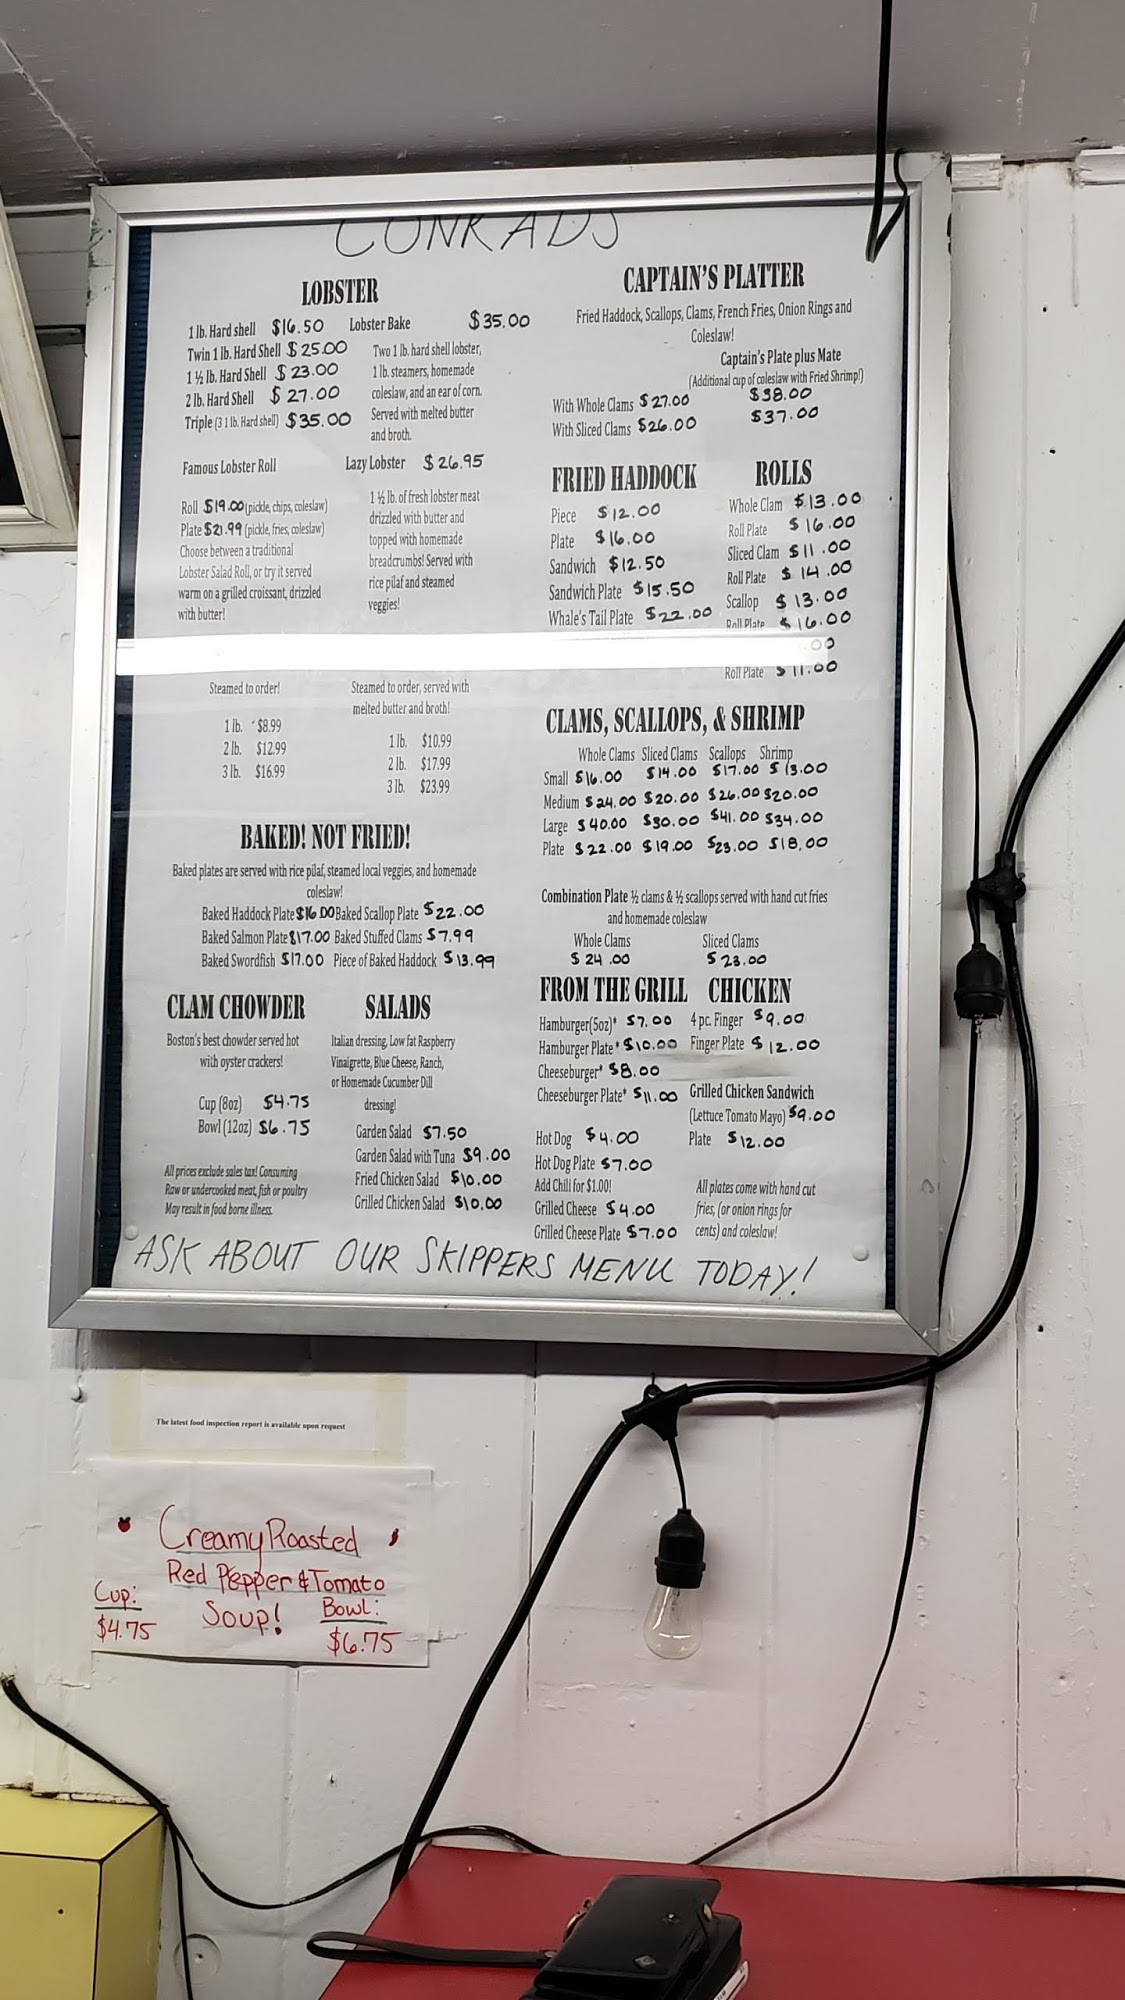 CONRADS
LOBSTER
1 lb. Hard shell $16.50
Twin 1 lb. Hard Shell $25.00
1 ½ lb. Hard Shell $23.00
2 lb. Hard Shell $27.00
Triple (3 1 lb. Hard shell) $35.00
Lobster Bake $35.00
Two 1 lb. hard shell lobster,
1 lb. steamers, homemade
coleslaw, and an ear of corn.
Served with melted butter
and broth.
Famous Lobster Roll
Roll $19.00 (pickle, chips, coleslaw)
Plate $21.99 (pickle, fries, coleslaw)
Choose between a traditional
Lobster Salad Roll, or try it served
warm on a grilled croissant, drizzled
with butter!
Lazy Lobster $26.95
1 ½ lb. of fresh lobster meat
drizzled with butter and
topped with homemade
breadcrumbs! Served with
rice pilaf and steamed
veggies!
Steamed to order!
1 lb. $8.99
2 lb. $12.99
3 lb. $16.99
Steamed to order, served with
melted butter and broth!
1 lb. $10.99
2 lb. $17.99
3 lb. $23.99
BAKED! NOT FRIED!
Baked plates are served with rice pilaf, steamed local veggies, and homemade
coleslaw!
Baked Haddock Plate $16.00 Baked Scallop Plate $22.00
Baked Salmon Plate $17.00 Baked Stuffed Clams $7.99
Baked Swordfish $17.00 Piece of Baked Haddock $13.99
CLAM CHOWDER
Boston's best chowder served hot
with oyster crackers!
Cup (8oz) $4.75
Bowl (12oz) $6.75
All prices exclude sales tax! Consuming
Raw or undercooked meat, fish or poultry
May result in food borne illness.
SALADS
Italian dressing, Low fat Raspberry
Vinaigrette, Blue Cheese, Ranch,
or Homemade Cucumber Dill
dressing!
Garden Salad $7.50
Garden Salad with Tuna $9.00
Fried Chicken Salad $10.00
Grilled Chicken Salad $10.00
CAPTAIN'S PLATTER
Fried Haddock, Scallops, Clams, French Fries, Onion Rings and
Coleslaw!
Captain's Plate plus Mate
(Additional cup of coleslaw with Fried Shrimp!)
With Whole Clams $27.00 $38.00
With Sliced Clams $26.00 $37.00
FRIED HADDOCK
Piece $12.00
Plate $16.00
Sandwich $12.50
Sandwich Plate $15.50
Whale's Tail Plate $22.00
ROLLS
Whole Clam $13.00
Roll Plate $16.00
Sliced Clam $11.00
Roll Plate $14.00
Scallop $13.00
Roll Plate $16.00
.00
Roll Plate $11.00
CLAMS, SCALLOPS, & SHRIMP
Whole Clams Sliced Clams Scallops Shrimp
Small $16.00 $14.00 $17.00 $13.00
Medium $24.00 $20.00 $26.00 $20.00
Large $40.00 $30.00 $41.00 $34.00
Plate $22.00 $19.00 $23.00 $18.00
Combination Plate ½ clams & ½ scallops served with hand cut fries
and homemade coleslaw
Whole Clams Sliced Clams
$24.00 $23.00
FROM THE GRILL
Hamburger(5oz)* $7.00
Hamburger Plate* $10.00
Cheeseburger* $8.00
Cheeseburger Plate* $11.00
Hot Dog $4.00
Hot Dog Plate $7.00
Add Chili for $1.00!
Grilled Cheese $4.00
Grilled Cheese Plate $7.00
CHICKEN
4 pc. Finger $9.00
Finger Plate $12.00
Grilled Chicken Sandwich
(Lettuce Tomato Mayo) $9.00
Plate $12.00
All plates come with hand cut
fries, (or onion rings for
cents) and coleslaw!
ASK ABOUT OUR SKIPPERS MENU TODAY!
The latest food inspection report is available upon request
Creamy Roasted
Red Pepper & Tomato
Soup!
Cup:
$4.75
Bowl:
$6.75